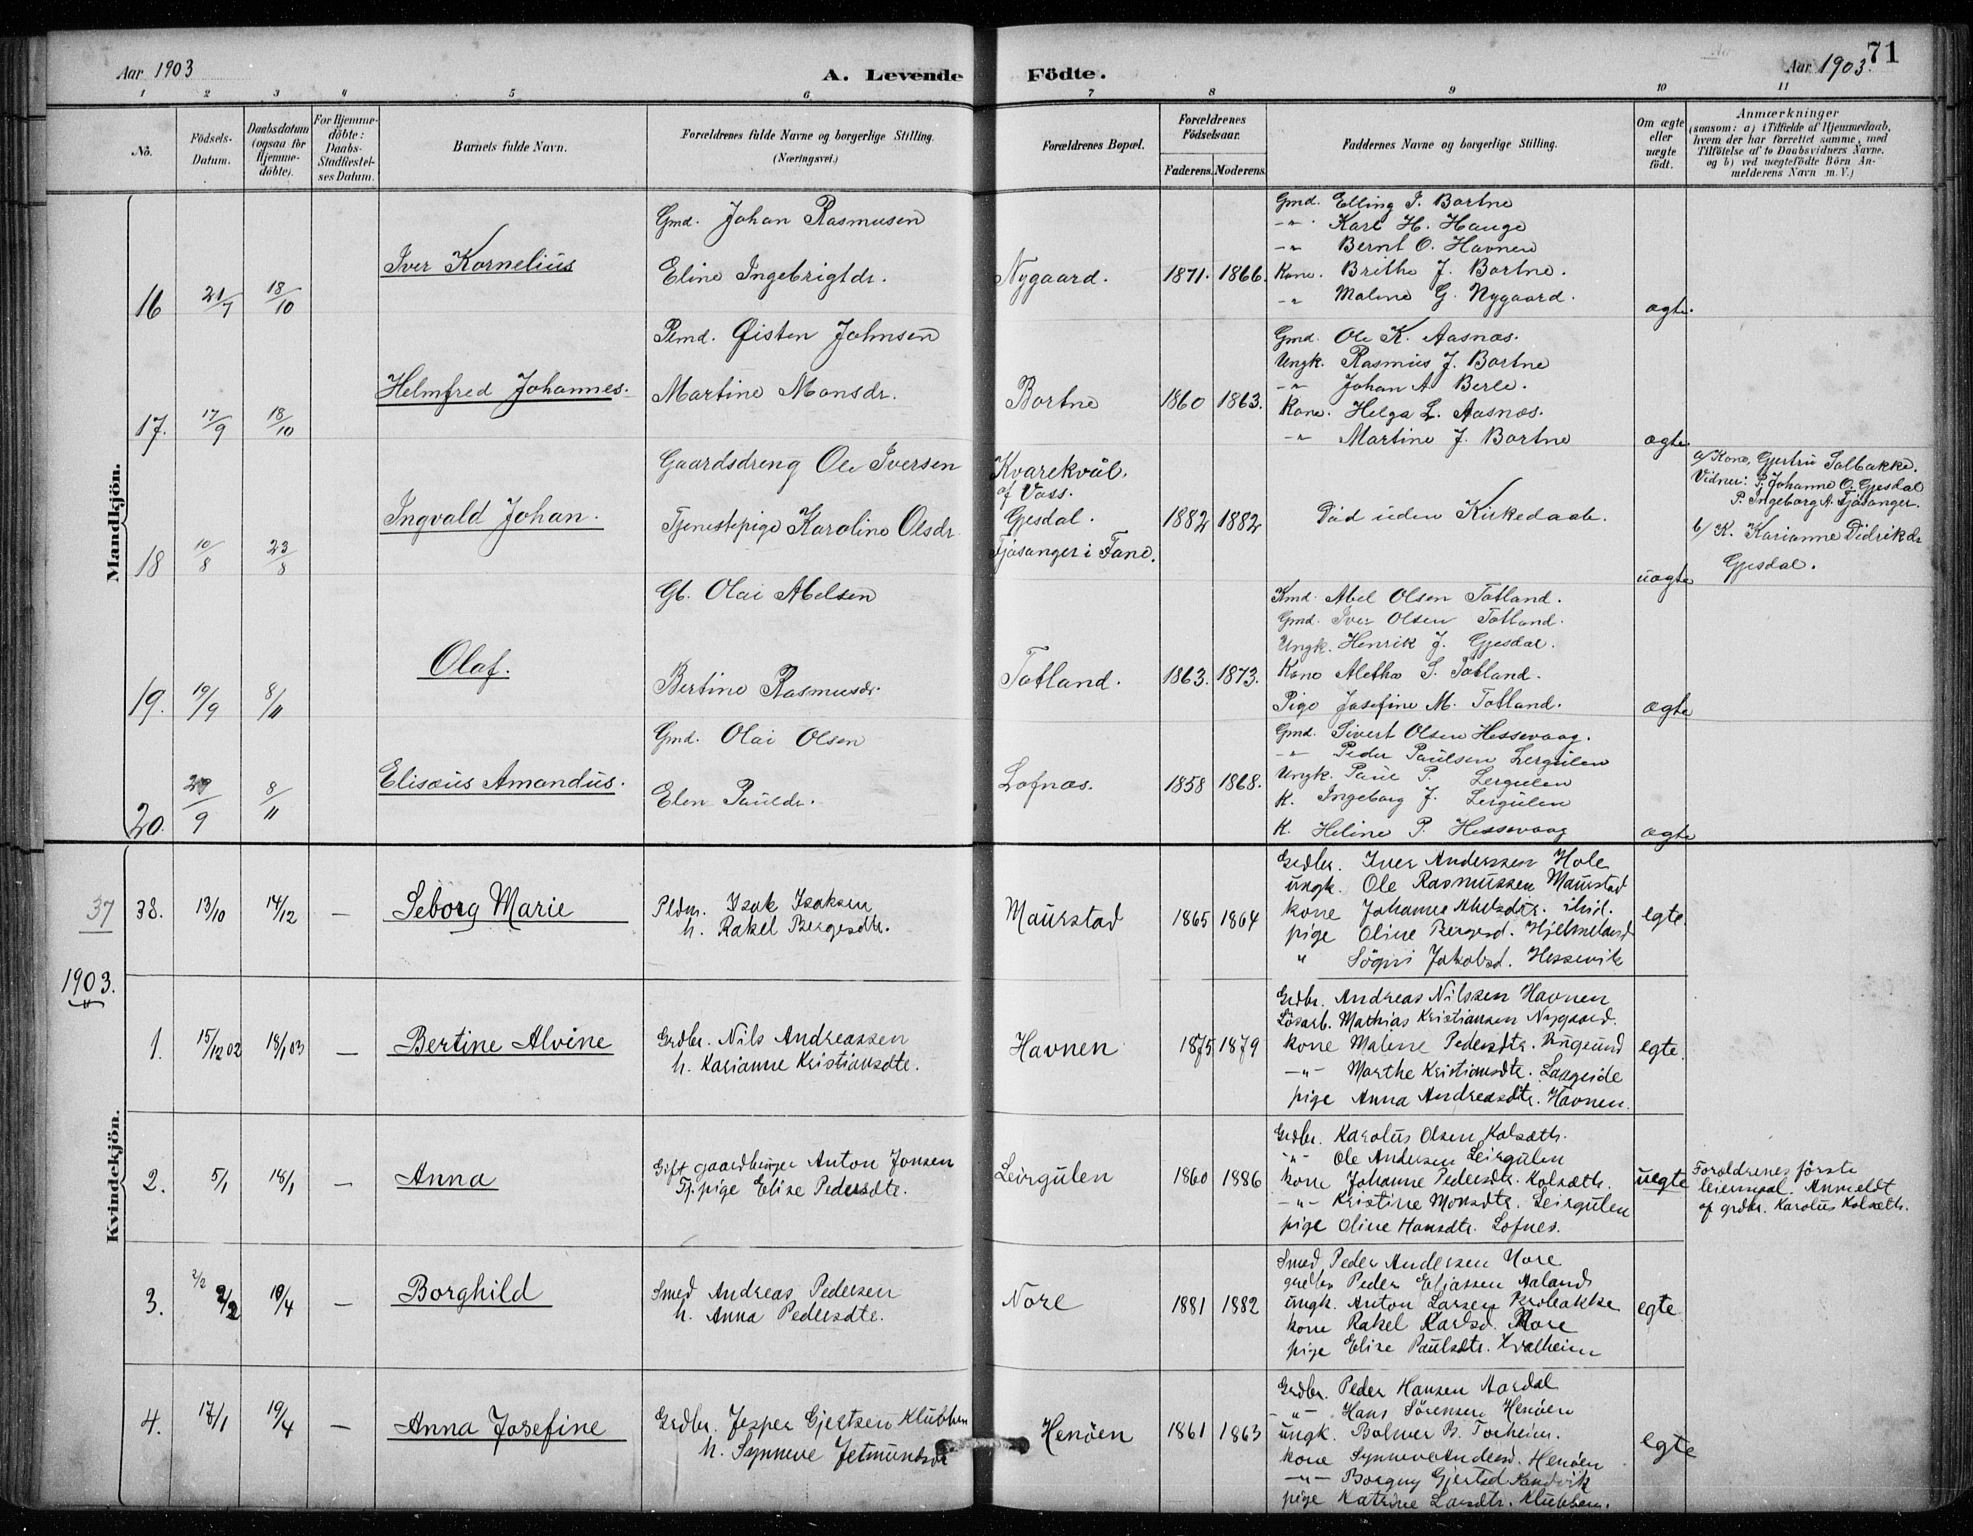 Aar 1903
A. Levende Födte.
Aar 1903.
71
1 2 3 4 5 6 7 8 9 10 11
No.
Födsels-Datum.
Daabsdatum (ogsaa for Hjemme-döbte).
For Hjemme-döbte: Daabs-Stadfæstel-ses Datum.
Barnets fulde Navn.
Forældrenes fulde Navne og borgerlige Stilling. (Næringsvei.)
Forældrenes Bopæl.
Forældrenes Födselsaar.
Faderens. Moderens.
Faddernes Navne og borgerlige Stilling.
Om ægte eller uægte födt.
Anmærkninger
(saasom: a) i Tilfælde af Hjemmedaab, hvem der har forrettet samme, med Tilföielse af to Daabsvidners Navne. og b) ved uægtefödte Börn An-melderens Navn m. V.)
Mandkjön.
16 21/7 18/10
Iver Kornelius
Gmd. Johan Rasmusen
Eline Ingebrigtdr.
Nygaard. 1871. 1866.
Gmd. Elling I. Bortne
-"- Karl H. Hauge
-"- Bernt O. Havnen
Kone. Brithe J. Bortne.
-"- Maline G. Nygaard.
ægte.
17. 17/9 18/10
Helmfred Johannes.
Pmd. Øisten Johnsen
Martine Monsdr.
Bortne 1860 1863.
Gmd. Ole K. Aasnæs.
Ungk. Rasmus J. Bortne
-"- Johan A Berle.
Kone. Helga L. Aasnæs.
-"- Martine J. Bortne
ægte.
18 10/8 23/8
Ingvald Johan.
Gaardsdreng Ole Iversen
Tjenestepige Karoline Olsdr.
Kvarekvål.
af Voss.
Gjesdal.
Fjøsanger i Fane.
1882 1882
Död uden Kirkedaab.
uægte
a/ Kone, Gjertru Solbakke.
Vidner: P. Johanne O. Gjesdal
P. Ingeborg A. Fjøsanger.
b/ K. Karianne Didrikdr
Gjesdal.
19. 19/9 8/11
Olaf.
Gb. Olai Abelsen
Bertine Rasmusdr.
Totland. 1863. 1873.
Kmd. Abel Olsen Totland.
Gmd. Iver Olsen Totland.
Ungk. Henrik J. Gjesdal.
Kone Alethe S. Totland.
Pige Josefine M. Totland.
ægte
20. 29/9 8/11
Elisæus Amandus.
Gmd. Olai Olsen
Elen Pauldr.
Lofnæs. 1858 1868.
Gmd. Sivert Olsen Hessevaag.
-"- Peder Paulsen Lergulen
Ungk. Paul P. Lergulen
K. Ingeborg J. Lergulen
K. Heline P. Hessevaag
ægte
Kvindekjön.
37 38. 13/10 14/12 —
Seborg Marie
Pldm. Isak Isaksen
h. Rakel Bergesdtr.
Maurstad 1865 1864
Grdbr. Iver Anderssen Hole
ungk. Ole Rasmussen Maurstad
kone Johanne Abelsdtr. ibid.
pige Oline Bergesd. Hjelmeland
" Sögni Jakobsd. Hessevik
egte.
1903.
1. 15/12 02 18/1 03 —
Bertine Alvine
Grdbr. Nils Andreassen
h. Karianne Kristiansdtr.
Havnen 1875 1879
Grdbr. Andreas Nilssen Havnen
Lösarb. Mathias Kristiansen Nygaard.
kone Malene Pedersdtr. Rugsund
-"- Marthe Kristiansdtr. Langeide
pige Anna Andreasdtr. Havnen.
egte.
2. 5/1 18/1 —
Anna
Gift gaardbruger Anton Jonsen
Tj. pige Elise Pedersdtr.
Leirgulen 1860 1886
Grdbr. Karolus Olsen Kolsæth.
-"- Ole Andersen Leirgulen
kone Johanne Pedersdtr. Kolsæth.
-"- Kristine Monsdtr. Leirgulen
pige Oline Hansdtr. Lofnes.
uegte
Foreldrenes förste
leiermaal. Anmeldt
af grdbr. Karolus Kolsæth.
3. 2/2 2/2 19/4 —
Borghild
Smed Andreas Pedersen
h. Anna Pedersdtr.
Nore 1881 1882
Smed Peder Andersen Nore
grdbr Peder Eljassen Aaland
ungk. Anton Larsen Krobakke
kone Rakel Karlsd. Nore
pige Elise Paulsdtr. Kvalheim
egte
4. 17/1 19/4 —
Anna Josefine
Grdbr. Jesper Gjertsen Klubben
h. Synneve Jetmundsdr
Henöen 1861 1863
Grdbr. Peder Hansen Aardal
-"- Hans Sörensen Henöen
ungk. Bolmer B. Torheim.
kone Synneve Andersd. Henöen
-"- Borgny Gjertsd. Sandvik
pige Katrine Larsdtr. Klubben.
egte